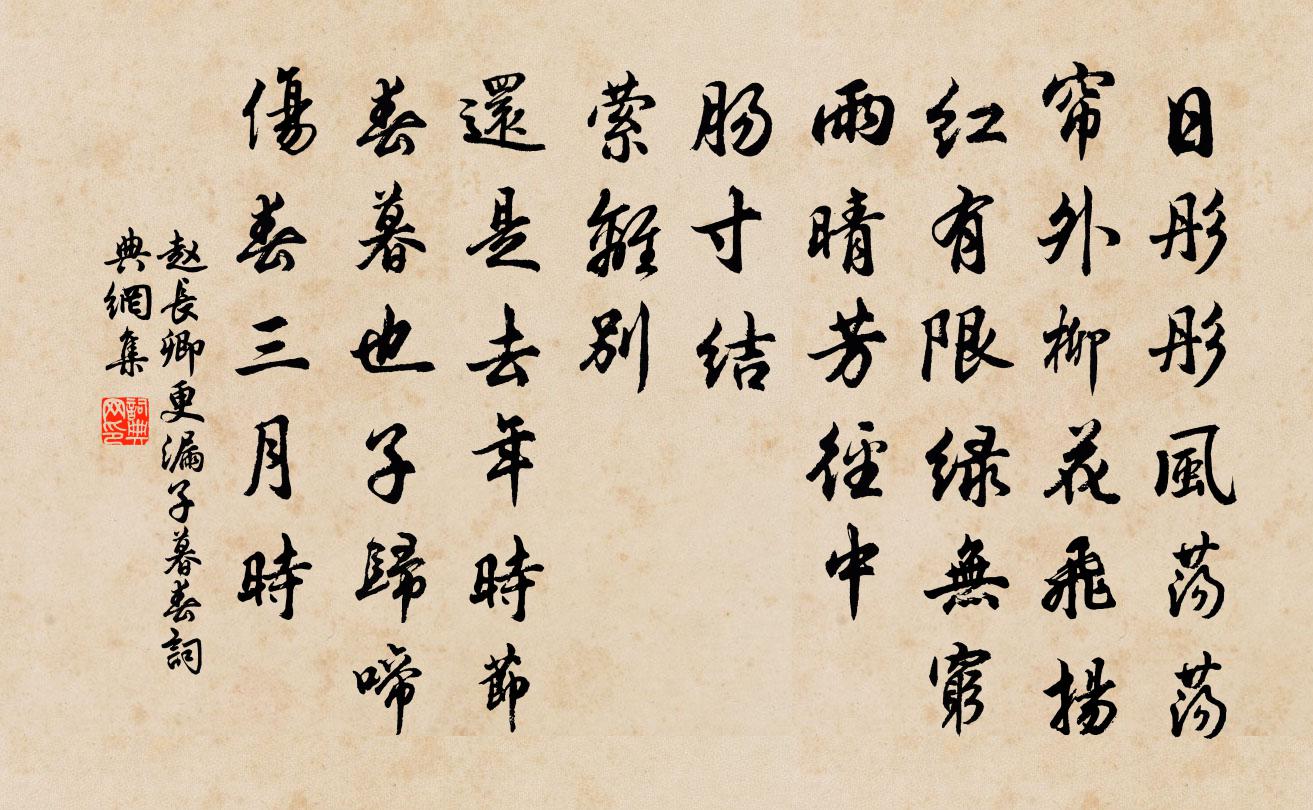 日彤彤風荡荡
帘外柳花飛揚
红有限绿無窮
雨晴芳徑中
肠寸结
萦離别
還是去年時節
春暮也子歸啼
傷春三月時
赵長卿更漏子暮春詞
典網集
詞典网印